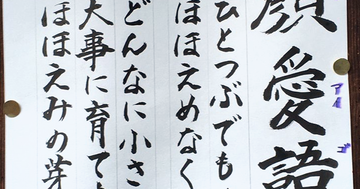 顔愛語
アイ
ゴ
ひとつぶでも
ほほえめなく
どんなに小さ
大事に育てま
ほほえみの芽